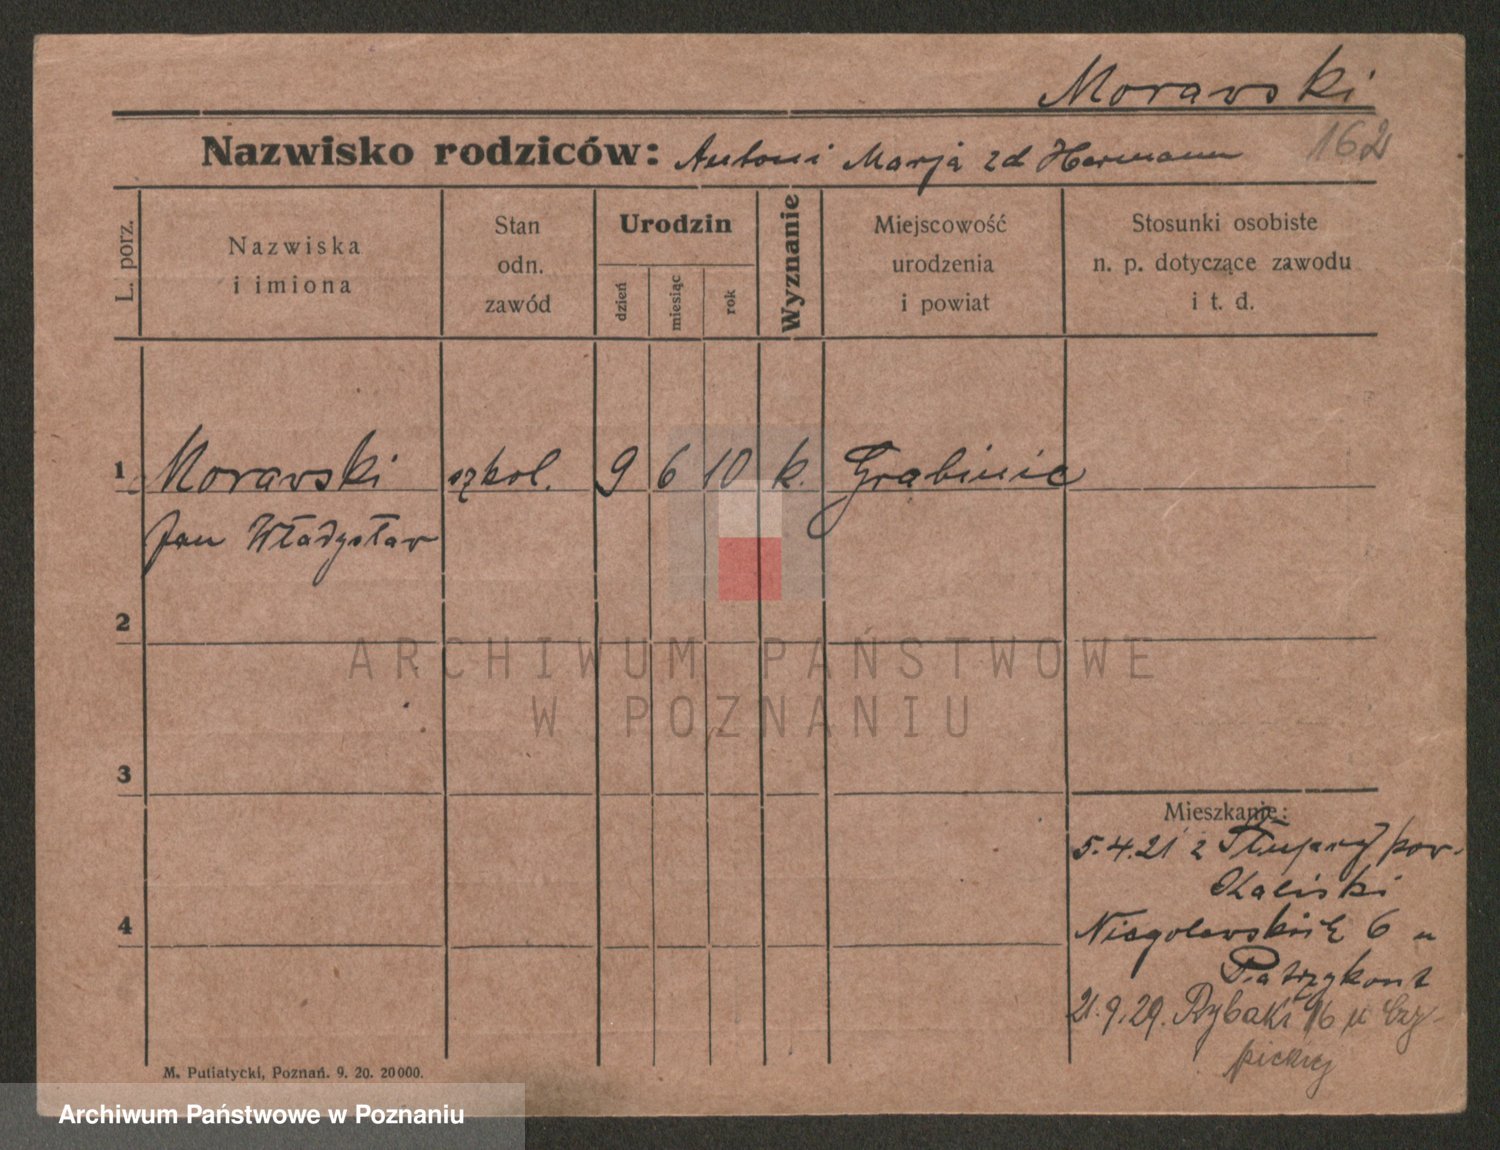 Morawski
162
Nazwisko rodziców: Antoni Marja zd Hermann
L. porz.
Nazwiska
i imiona
Stan
odn.
zawód
Urodzin
dzień
miesiąc
rok
Wyznanie
Miejscowość
urodzenia
i powiat
Stosunki osobiste
n. p. dotyczące zawodu
i t. d.
1 Morawski szkol. 9 6 10 k. Grabinic
Jan Władysław
2
ARCHIWUM PAŃSTWOWE
W POZNANIU
3
Mieszkanie:
5.4.21 z pow.
Kaliski
4
Niegolewskich 6 u
21.9.29. Rybaki 16 u
M. Putiatycki, Poznań. 9. 20. 20000.
Archiwum Państwowe w Poznaniu